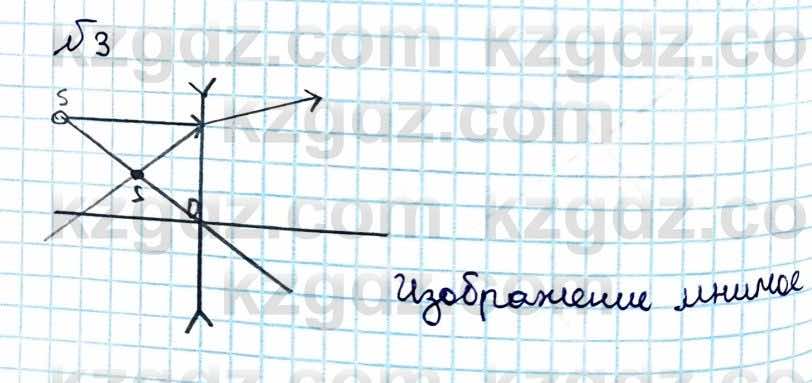 №3
S
S
O
Изображение мнимое
kzgdz.com kzgdz.co
kzgdz.com
kzgdz.com kzgdz.co
kzgdz.com
kzgdz.com kzgdz.co